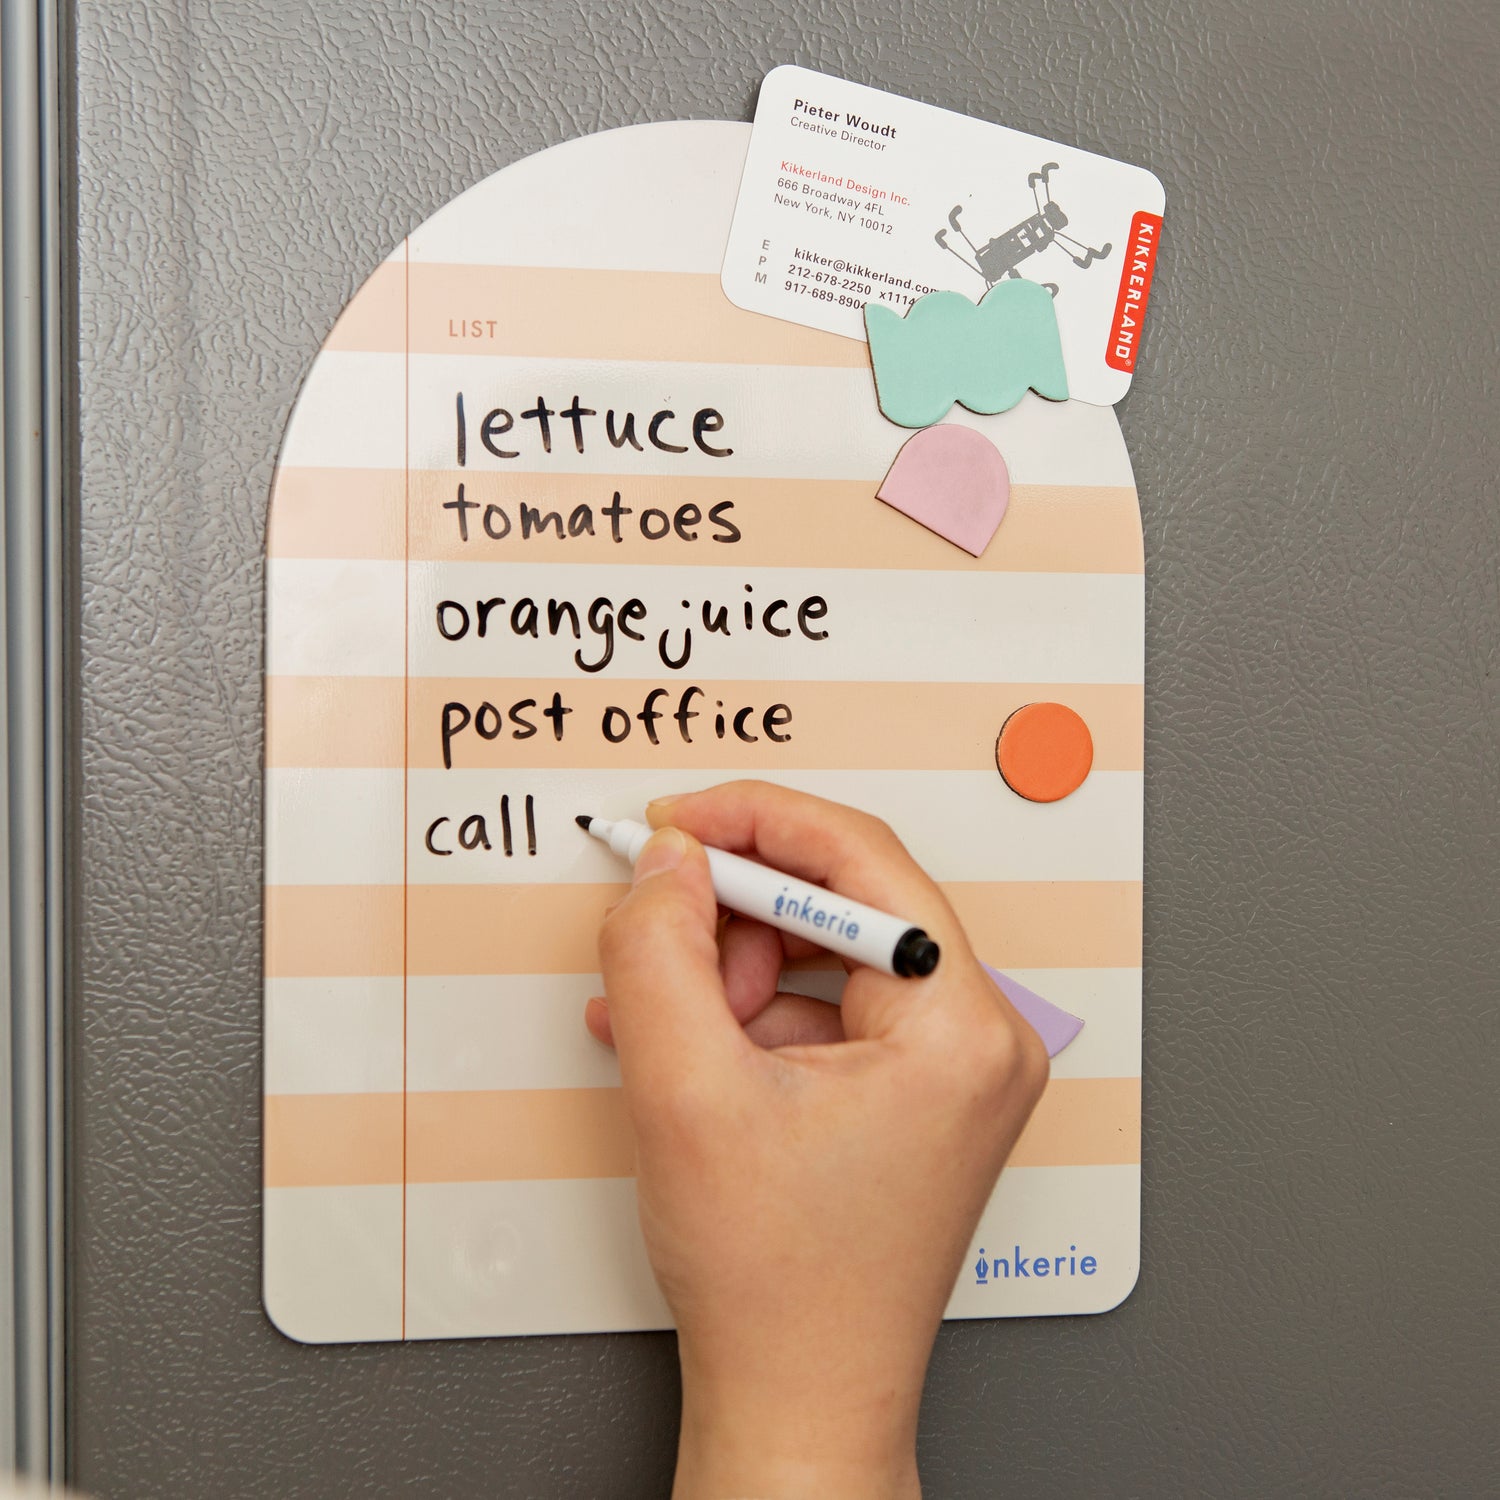 Pieter Woudt
Creative Director
Kikkerland Design Inc.
666 Broadway 4FL
New York, NY 10012
E kikker@kikkerland.com
P 212-678-2250 x1114
M 917-689-890
KIKKERLAND®
LIST
lettuce
tomatoes
orange juice
post office
call
inkerie
inkerie